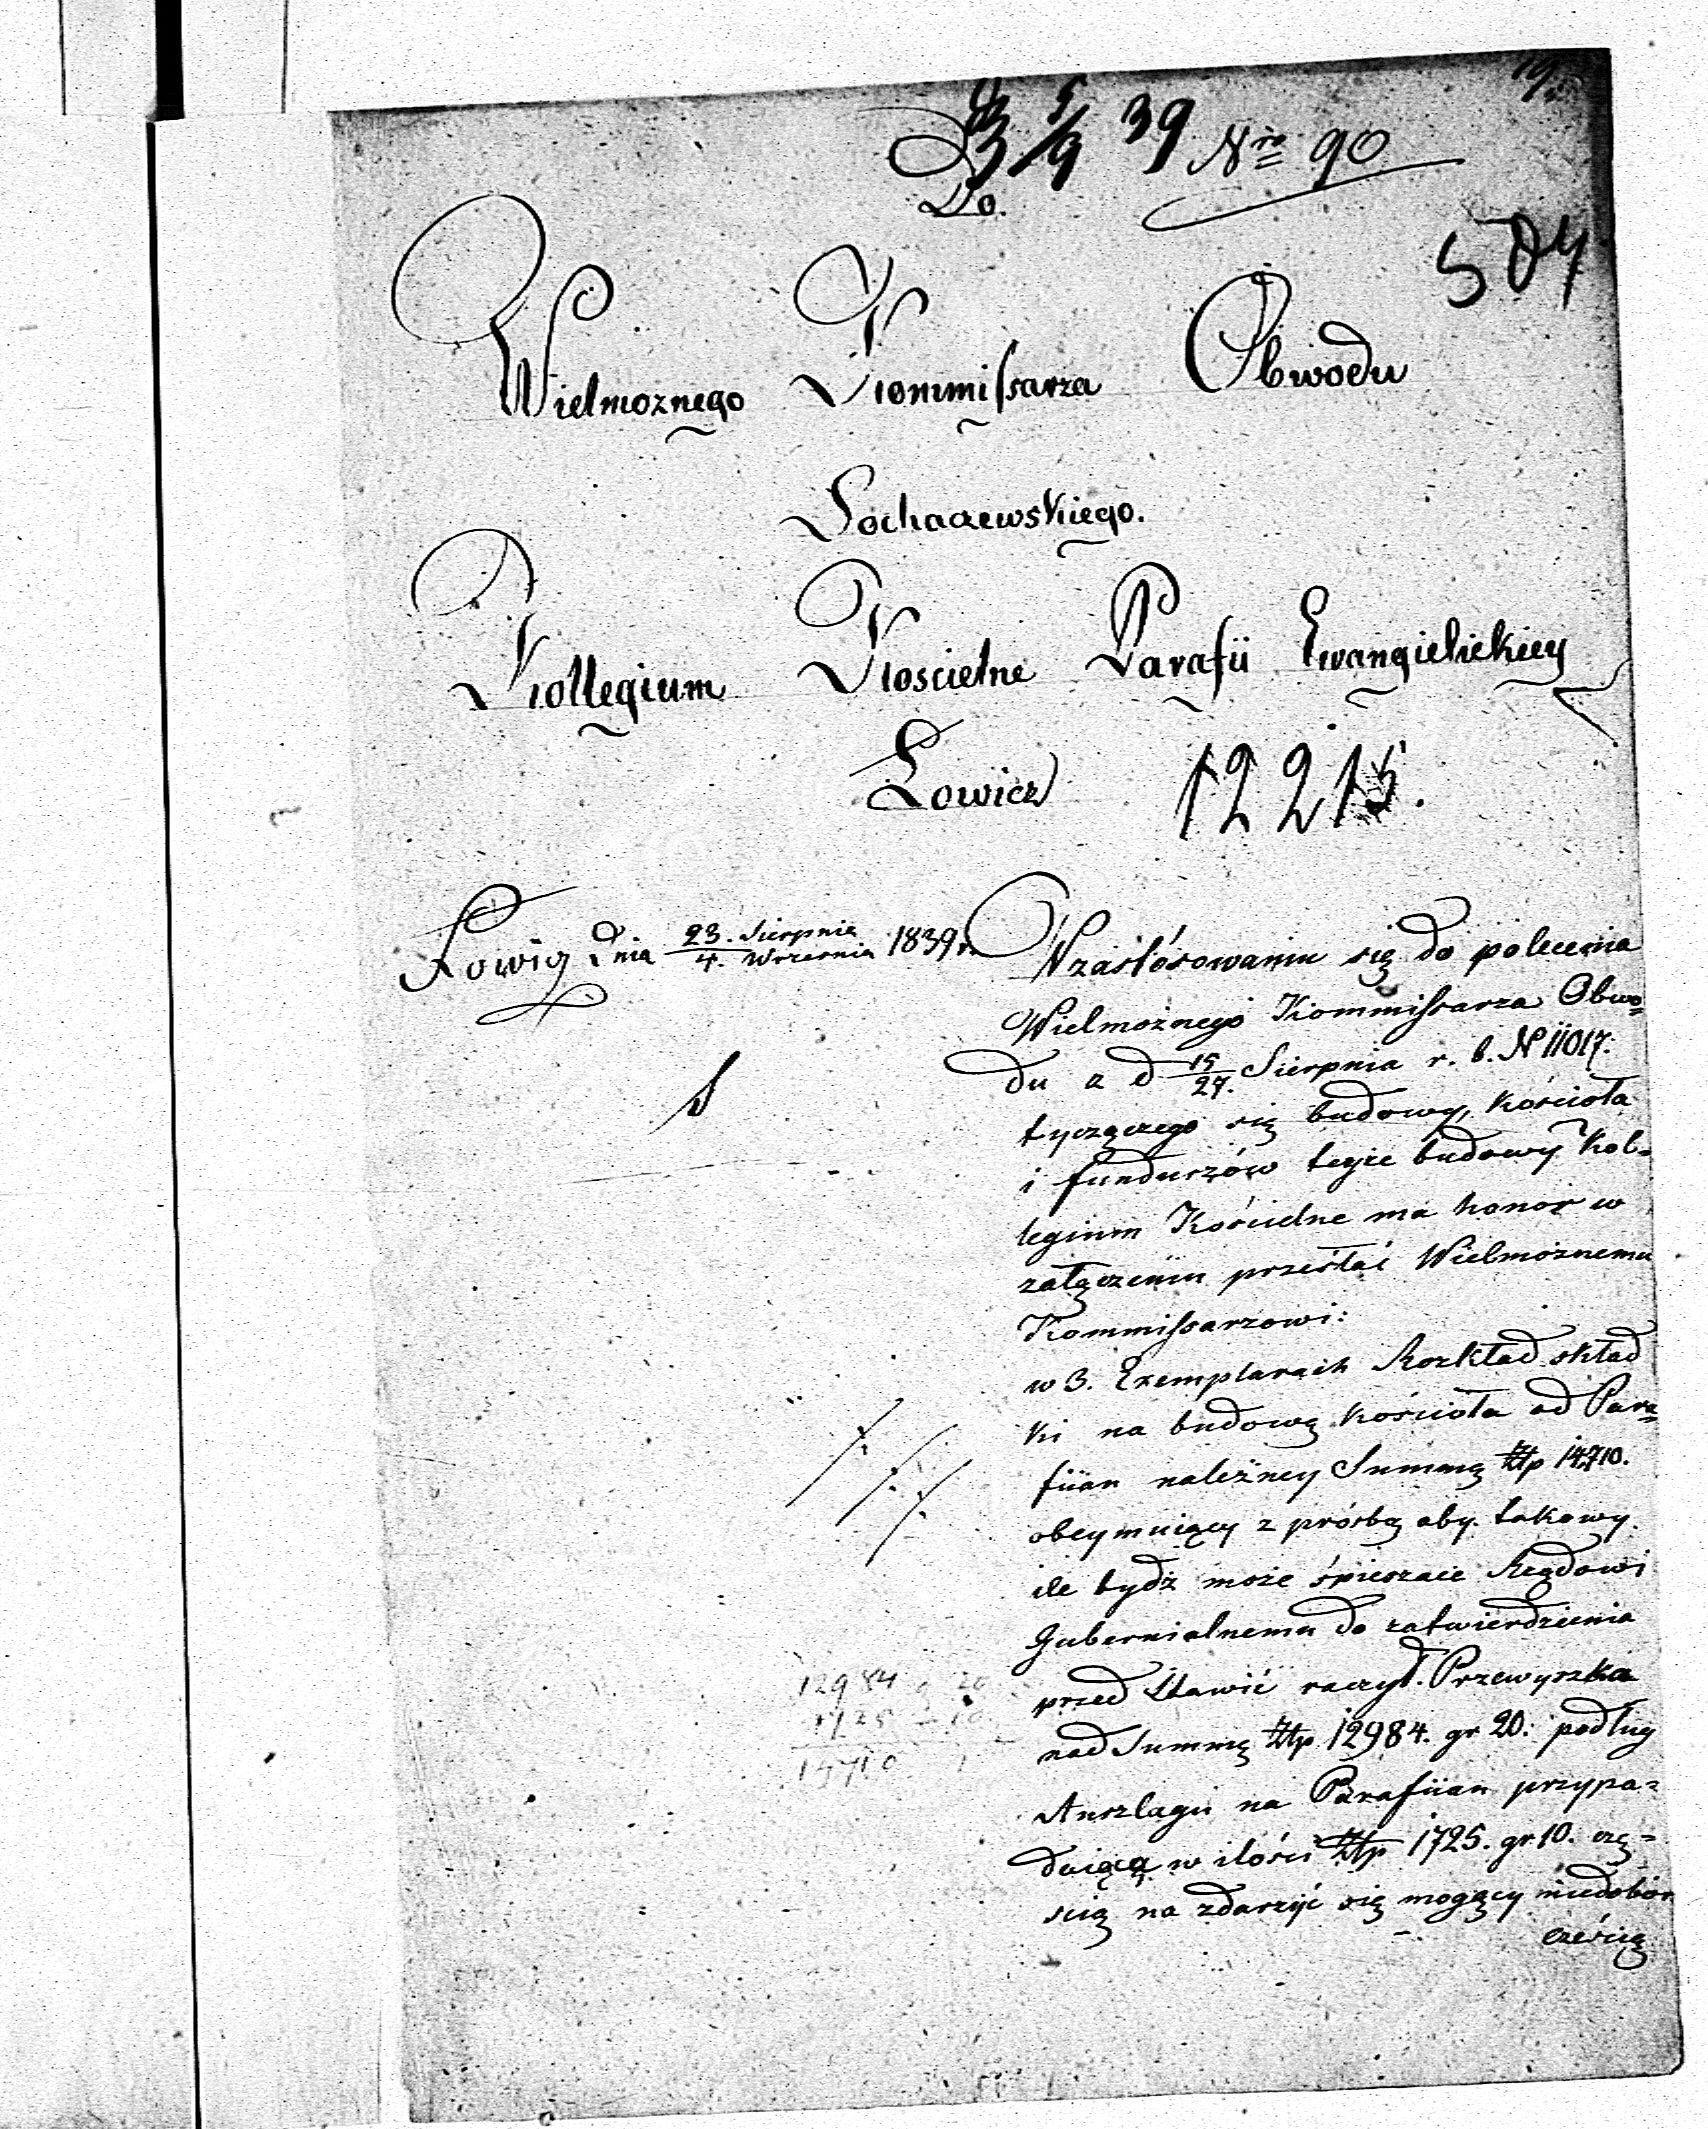 19.
3 5/9 39 Nro 90
Do.
504
Wielmoznego Kommissarza Obwodu
Sochaczewskiego.
Kollegium Koscielne Parafii Ewangielickiey
Łowicz 12215.
Łowicz Dnia 23. Sierpnia / 4. Wrzesnia 1839 r.
W zastósowaniu się do polecenia
Wielmożnego Kommissarza Obwo=
du z d 15/27. Sierpnia r. b. N 11017.
tyczącego się budowy kościoła
i funduszów teyże budowy Kol=
legium Kościelne ma honor w
załączeniu przesłać Wielmożnemu
Kommissarzowi:
w 3. Exemplarach Rozkład skład
ki na budowę kościoła od Para=
fiian należney Summę Złp 14710.
obeymuiący z prośbą aby takowy
ile bydź może śpieszcie Rządowi
Gubernialnemu do zatwierdzienia
przed stawić raczył. Przewyszka
nad Summę Złp 12984. gr 20. podług
Anszlagu na Parafiian przypa=
daiącą w ilości Złp 1725. gr 10. czę=
scią na zdarzyć się mogący niedobór
cześcią
12984 20
1725 - 10
14710